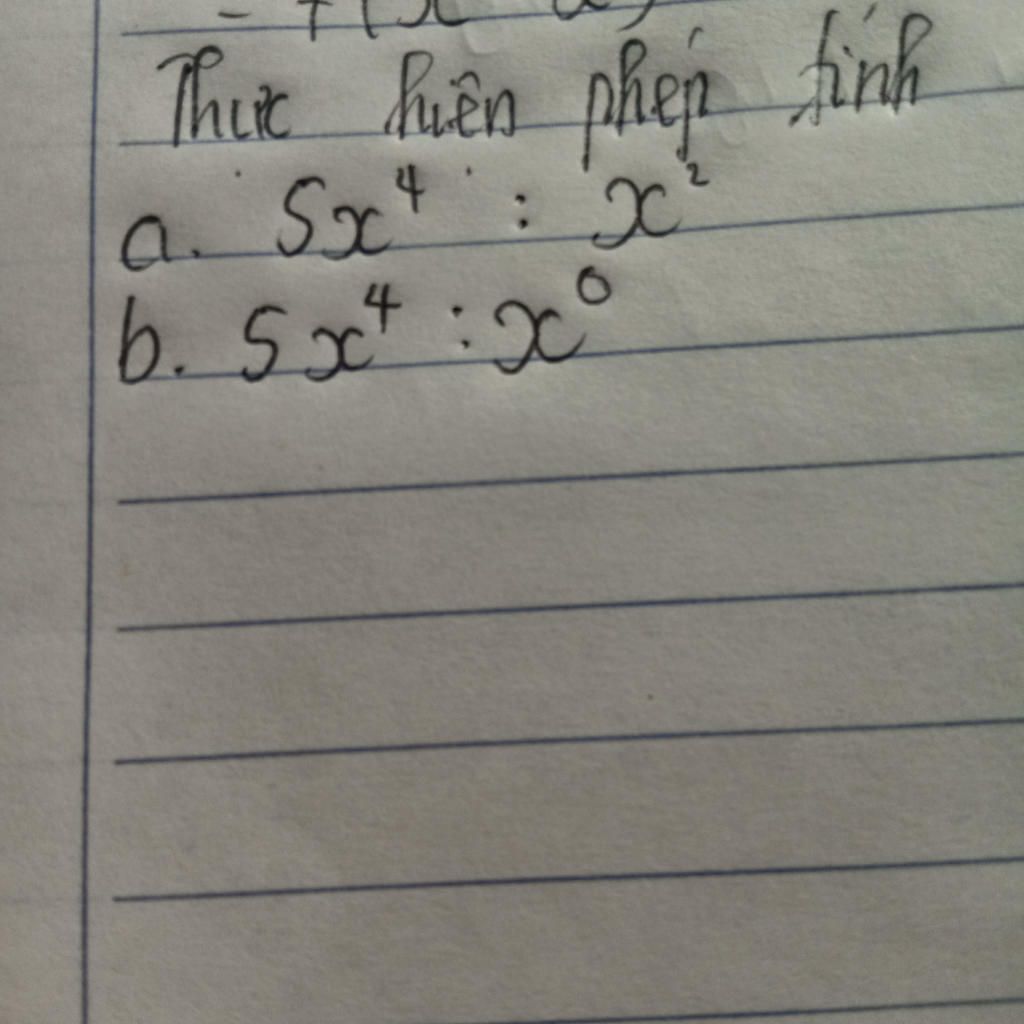 Thực hiện phép tính
a. 5x⁴ : x²
b. 5x⁴ : x⁰